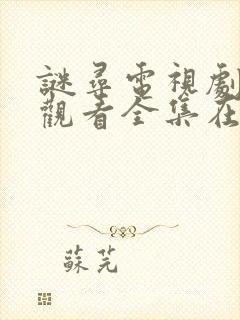 謎尋電視劇
觀看全集在
蘇芫